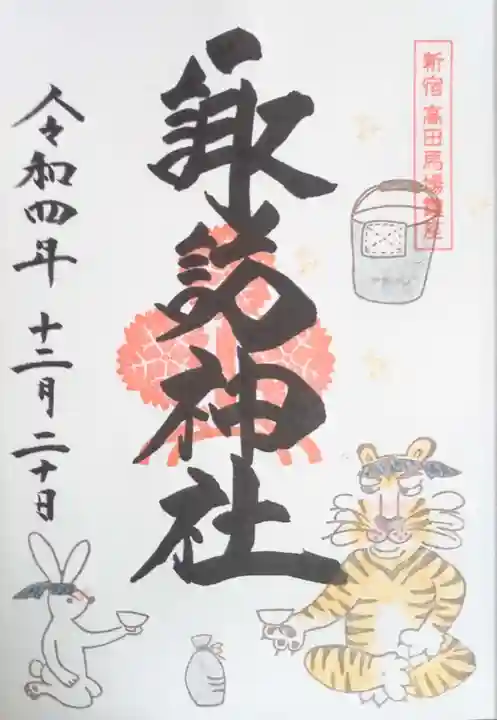 新宿 高田馬場鎮座
諏訪神社
令和四年 十二月二十日